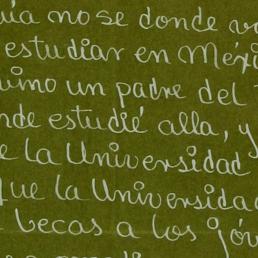 ía no se donde
estudiar en Méxi
un padre del
nde estudié alla, y
e la Universidad
que la Universida
becas a los jóv